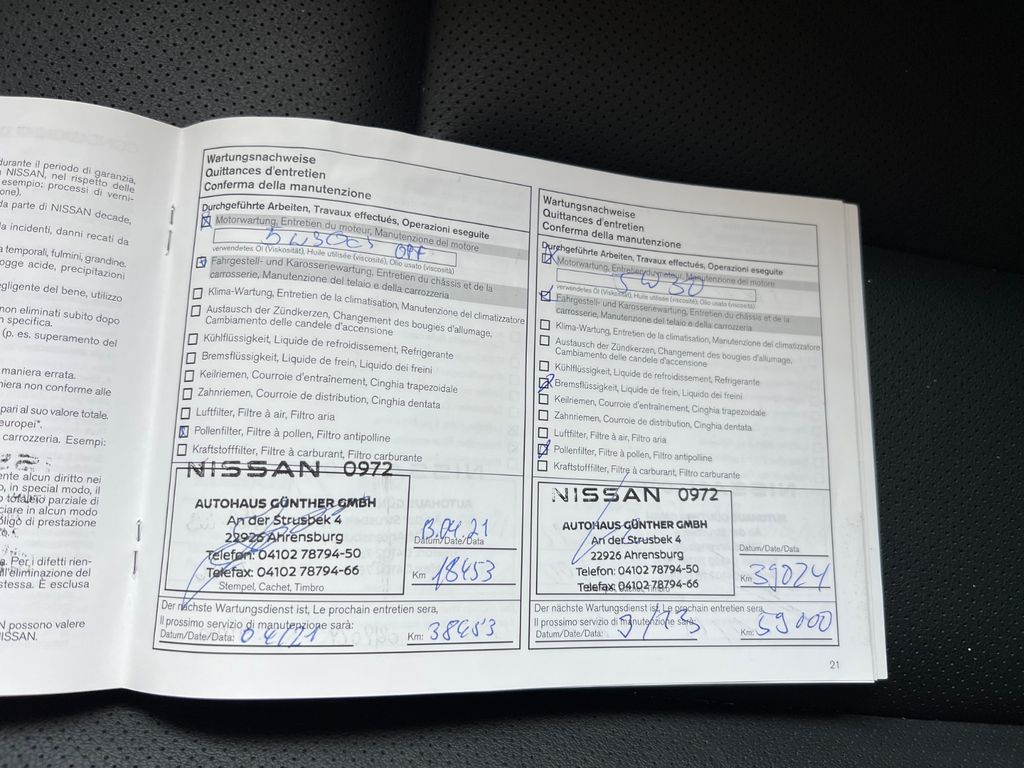 durante il periodo di garanzia,
NISSAN, nel rispetto delle
esempio: processi di verni-
one).
da parte di NISSAN decade,
a incidenti, danni recati da
temporali, fulmini, grandine.
ogge acide, precipitazioni
egligente del bene, utilizzo
non eliminati subito dopo
n specifica.
(p. es. superamento del
maniera errata.
niera non conforme alle
pari al suo valore totale.
europei*.
carrozzeria. Esempi:
ente alcun diritto nei
o, in special modo, il
totale o parziale di
ciare in alcun modo
bligo di prestazione
Per i difetti rien-
all'eliminazione del
stessa. È esclusa
N possono valere
NISSAN.
Wartungsnachweise
Quittances d'entretien
Conferma della manutenzione
Durchgeführte Arbeiten, Travaux effectués, Operazioni eseguite
Motorwartung, Entretien du moteur, Manutenzione del motore
verwendetes Öl (Viskosität), Huile utilisée (viscosité), Olio usato (viscosità)
Fahrgestell- und Karosseriewartung, Entretien du châssis et de la
carrosserie, Manutenzione del telaio e della carrozzeria
Klima-Wartung, Entretien de la climatisation, Manutenzione del climatizzatore
Austausch der Zündkerzen, Changement des bougies d'allumage,
Cambiamento delle candele d'accensione
Kühlflüssigkeit, Liquide de refroidissement, Refrigerante
Bremsflüssigkeit, Liquide de frein, Liquido dei freini
Keilriemen, Courroie d'entraînement, Cinghia trapezoidale
Zahnriemen, Courroie de distribution, Cinghia dentata
Luftfilter, Filtre à air, Filtro aria
Pollenfilter, Filtre à pollen, Filtro antipolline
Kraftstofffilter, Filtre à carburant, Filtro carburante
NISSAN 0972
AUTOHAUS GÜNTHER GMBH
An der Strusbek 4
22926 Ahrensburg
Telefon: 04102 78794-50
Telefax: 04102 78794-66
Stempel, Cachet, Timbro
13.04.21
Datum/Date/Data
Km 18453
Der nächste Wartungsdienst ist, Le prochain entretien sera,
Il prossimo servizio di manutenzione sarà:
Datum/Date/Data: 04/21 Km: 38453
Wartungsnachweise
Quittances d'entretien
Conferma della manutenzione
Durchgeführte Arbeiten, Travaux effectués, Operazioni eseguite
Motorwartung, Entretien du moteur, Manutenzione del motore
5W30
verwendetes Öl (Viskosität), Huile utilisée (viscosité), Olio usato (viscosità)
Fahrgestell- und Karosseriewartung, Entretien du châssis et de la
carrosserie, Manutenzione del telaio e della carrozzeria
Klima-Wartung, Entretien de la climatisation, Manutenzione del climatizzatore
Austausch der Zündkerzen, Changement des bougies d'allumage,
Cambiamento delle candele d'accensione
Kühlflüssigkeit, Liquide de refroidissement, Refrigerante
Bremsflüssigkeit, Liquide de frein, Liquido dei freini
Keilriemen, Courroie d'entraînement, Cinghia trapezoidale
Zahnriemen, Courroie de distribution, Cinghia dentata
Luftfilter, Filtre à air, Filtro aria
Pollenfilter, Filtre à pollen, Filtro antipolline
Kraftstofffilter, Filtre à carburant, Filtro carburante
NISSAN 0972
AUTOHAUS GÜNTHER GMBH
An der Strusbek 4
22926 Ahrensburg
Telefon: 04102 78794-50
Telefax: 04102 78794-66
Datum/Date/Data
Km 39024
Der nächste Wartungsdienst ist, Le prochain entretien sera,
Il prossimo servizio di manutenzione sarà:
Datum/Date/Data: Km: 59000
21